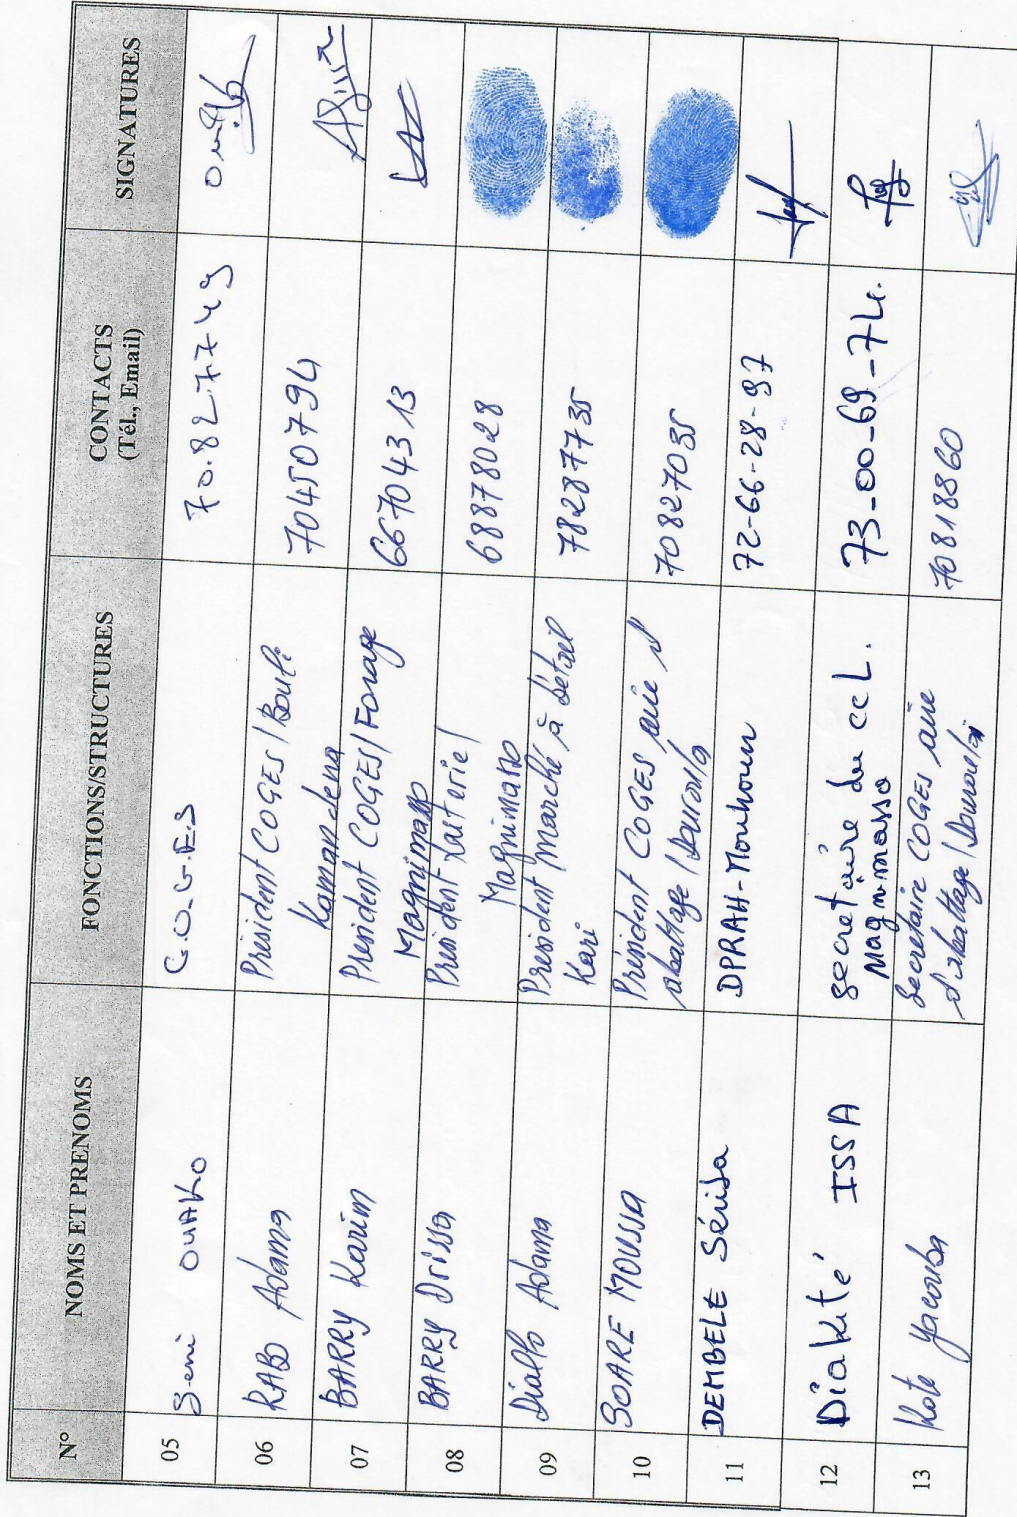 N° NOMS ET PRENOMS FONCTIONS/STRUCTURES CONTACTS (Tél., Email) SIGNATURES
05 Seni OUAKO C.O.G.E.S 70.82.77.49
06 RABO Adama Président COGES / Bouli
Kamandena 70450794
07 BARRY Karim Président COGES / Forage
Magnimasso 66704313
08 BARRY Drissa Président Laiterie /
Magnimasso 68878028
09 Diallo Adama Président marché à bétail
Kari 78287735
10 SOARE MOUSSA Président COGES aire d'
abattage / Douroula 70827035
11 DEMBELE Sériba DPRAH-Mouhoun 72-66-28-97
12 Diakité ISSA secretaire du CCL.
Magnimasso 73-00-69-74.
13 Kote Yacouba Secretaire COGES aire
d'abattage / Douroula 70818860